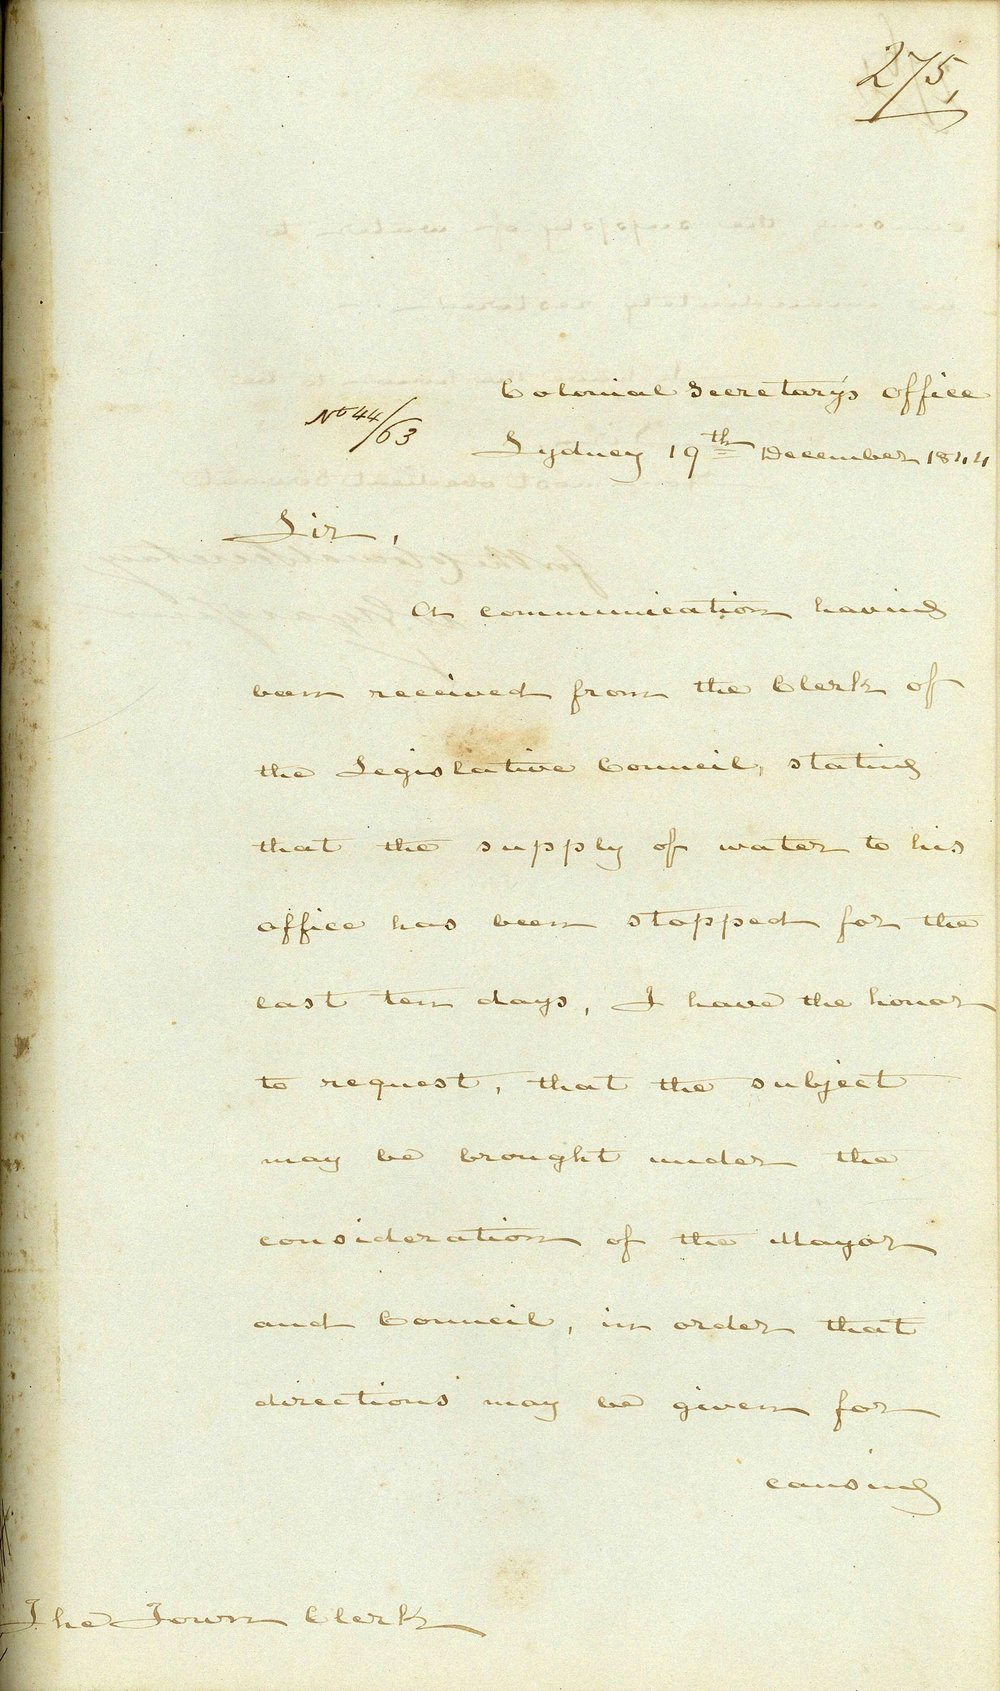 275,
Colonial Secretary's Office
No 44/63
Sydney 19th December 1844
Sir,
A communication having
been received from the Clerk of
the Legislative Council, stating
that the supply of water to his
office has been stopped for the
last ten days, I have the honor
to request, that the subject
may be brought under the
consideration of the Mayor
and Council, in order that
directions may be given for
causing
The Town Clerk